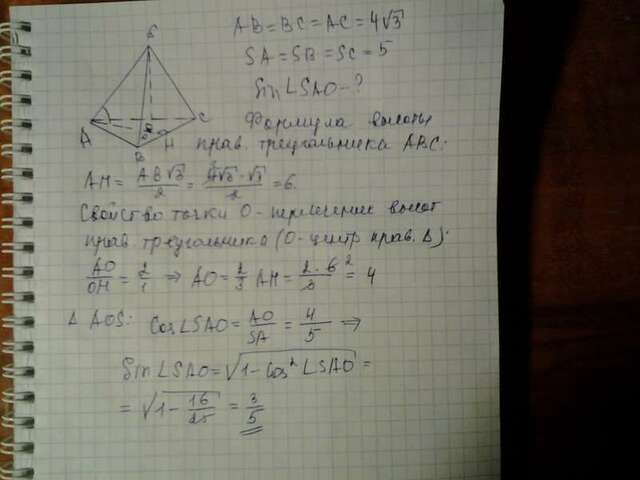 AB=BC=AC=4√3
SA=SB=SC=5
Sin∠SAO-?
S
A
B
C
H
O
Формула высоты
прав. треугольника ABC:
AH= AB√3/2 = 4√3·√3/2 =6.
Свойство точки O - пересечение высот
прав треугольника (O-центр прав. Δ):
AO/OH = 2/1 ⇒ AO= 2/3 AH= 2·6/3 = 4
Δ AOS: Cos∠SAO= AO/SA = 4/5 ⇒
Sin∠SAO=√(1-Cos²∠SAO) =
= √(1- 16/25) = 3/5